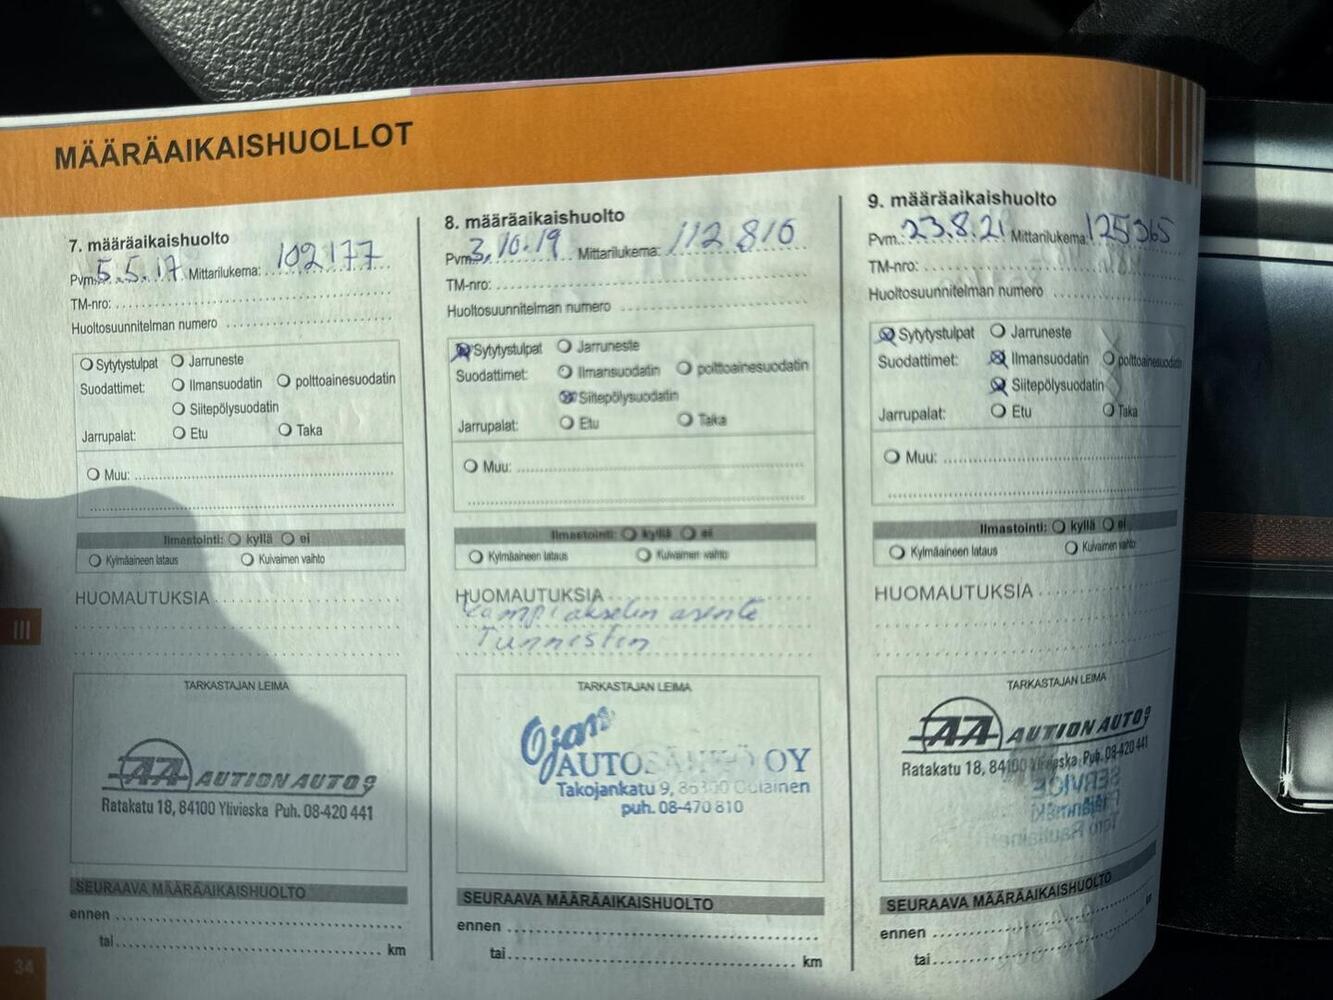 MÄÄRÄAIKAISHUOLLOT
7. määräaikaishuolto
Pvm. 5.5.17 Mittarilukema: 102177
TM-nro:
Huoltosuunnitelman numero
Sytytystulpat Jarruneste
Suodattimet: Ilmansuodatin polttoainesuodatin
Siitepölysuodatin
Jarrupalat: Etu Taka
Muu:
Ilmastointi: kyllä ei
Kylmäaineen lataus Kuivaimen vaihto
HUOMAUTUKSIA
TARKASTAJAN LEIMA
AA AUTION AUTO
Ratakatu 18, 84100 Ylivieska Puh. 08-420 441
SEURAAVA MÄÄRÄAIKAISHUOLTO
ennen
tai km
8. määräaikaishuolto
Pvm. 3.10.19 Mittarilukema: 112816
TM-nro:
Huoltosuunnitelman numero
Sytytystulpat Jarruneste
Suodattimet: Ilmansuodatin polttoainesuodatin
Siitepölysuodatin
Jarrupalat: Etu Taka
Muu:
Ilmastointi: kyllä ei
Kylmäaineen lataus Kuivaimen vaihto
HUOMAUTUKSIA
Kampiakselin asento
Tunnistin
TARKASTAJAN LEIMA
Ojan
AUTOSÄHKÖ OY
Takojankatu 9, 86300 Oulainen
puh. 08-470 810
SEURAAVA MÄÄRÄAIKAISHUOLTO
ennen
tai km
9. määräaikaishuolto
Pvm. 23.8.21 Mittarilukema: 125365
TM-nro:
Huoltosuunnitelman numero
Sytytystulpat Jarruneste
Suodattimet: Ilmansuodatin polttoainesuodatin
Siitepölysuodatin
Jarrupalat: Etu Taka
Muu:
Ilmastointi: kyllä ei
Kylmäaineen lataus Kuivaimen vaihto
HUOMAUTUKSIA
TARKASTAJAN LEIMA
AA AUTION AUTO
Ratakatu 18, 84100 Ylivieska Puh. 08-420 441
SERVICE
SEURAAVA MÄÄRÄAIKAISHUOLTO
ennen
tai
III
34